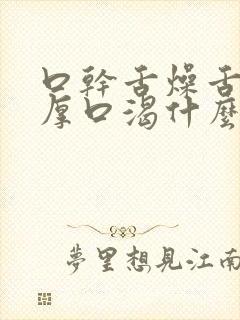 口幹舌燥舌
厚口渴什麼
夢里想見江南